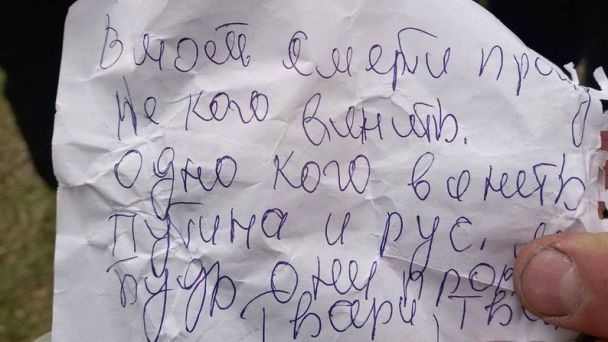 В моей смерти
не кого винить.
одно кого винить
путина и рус.
будь они
Твари,